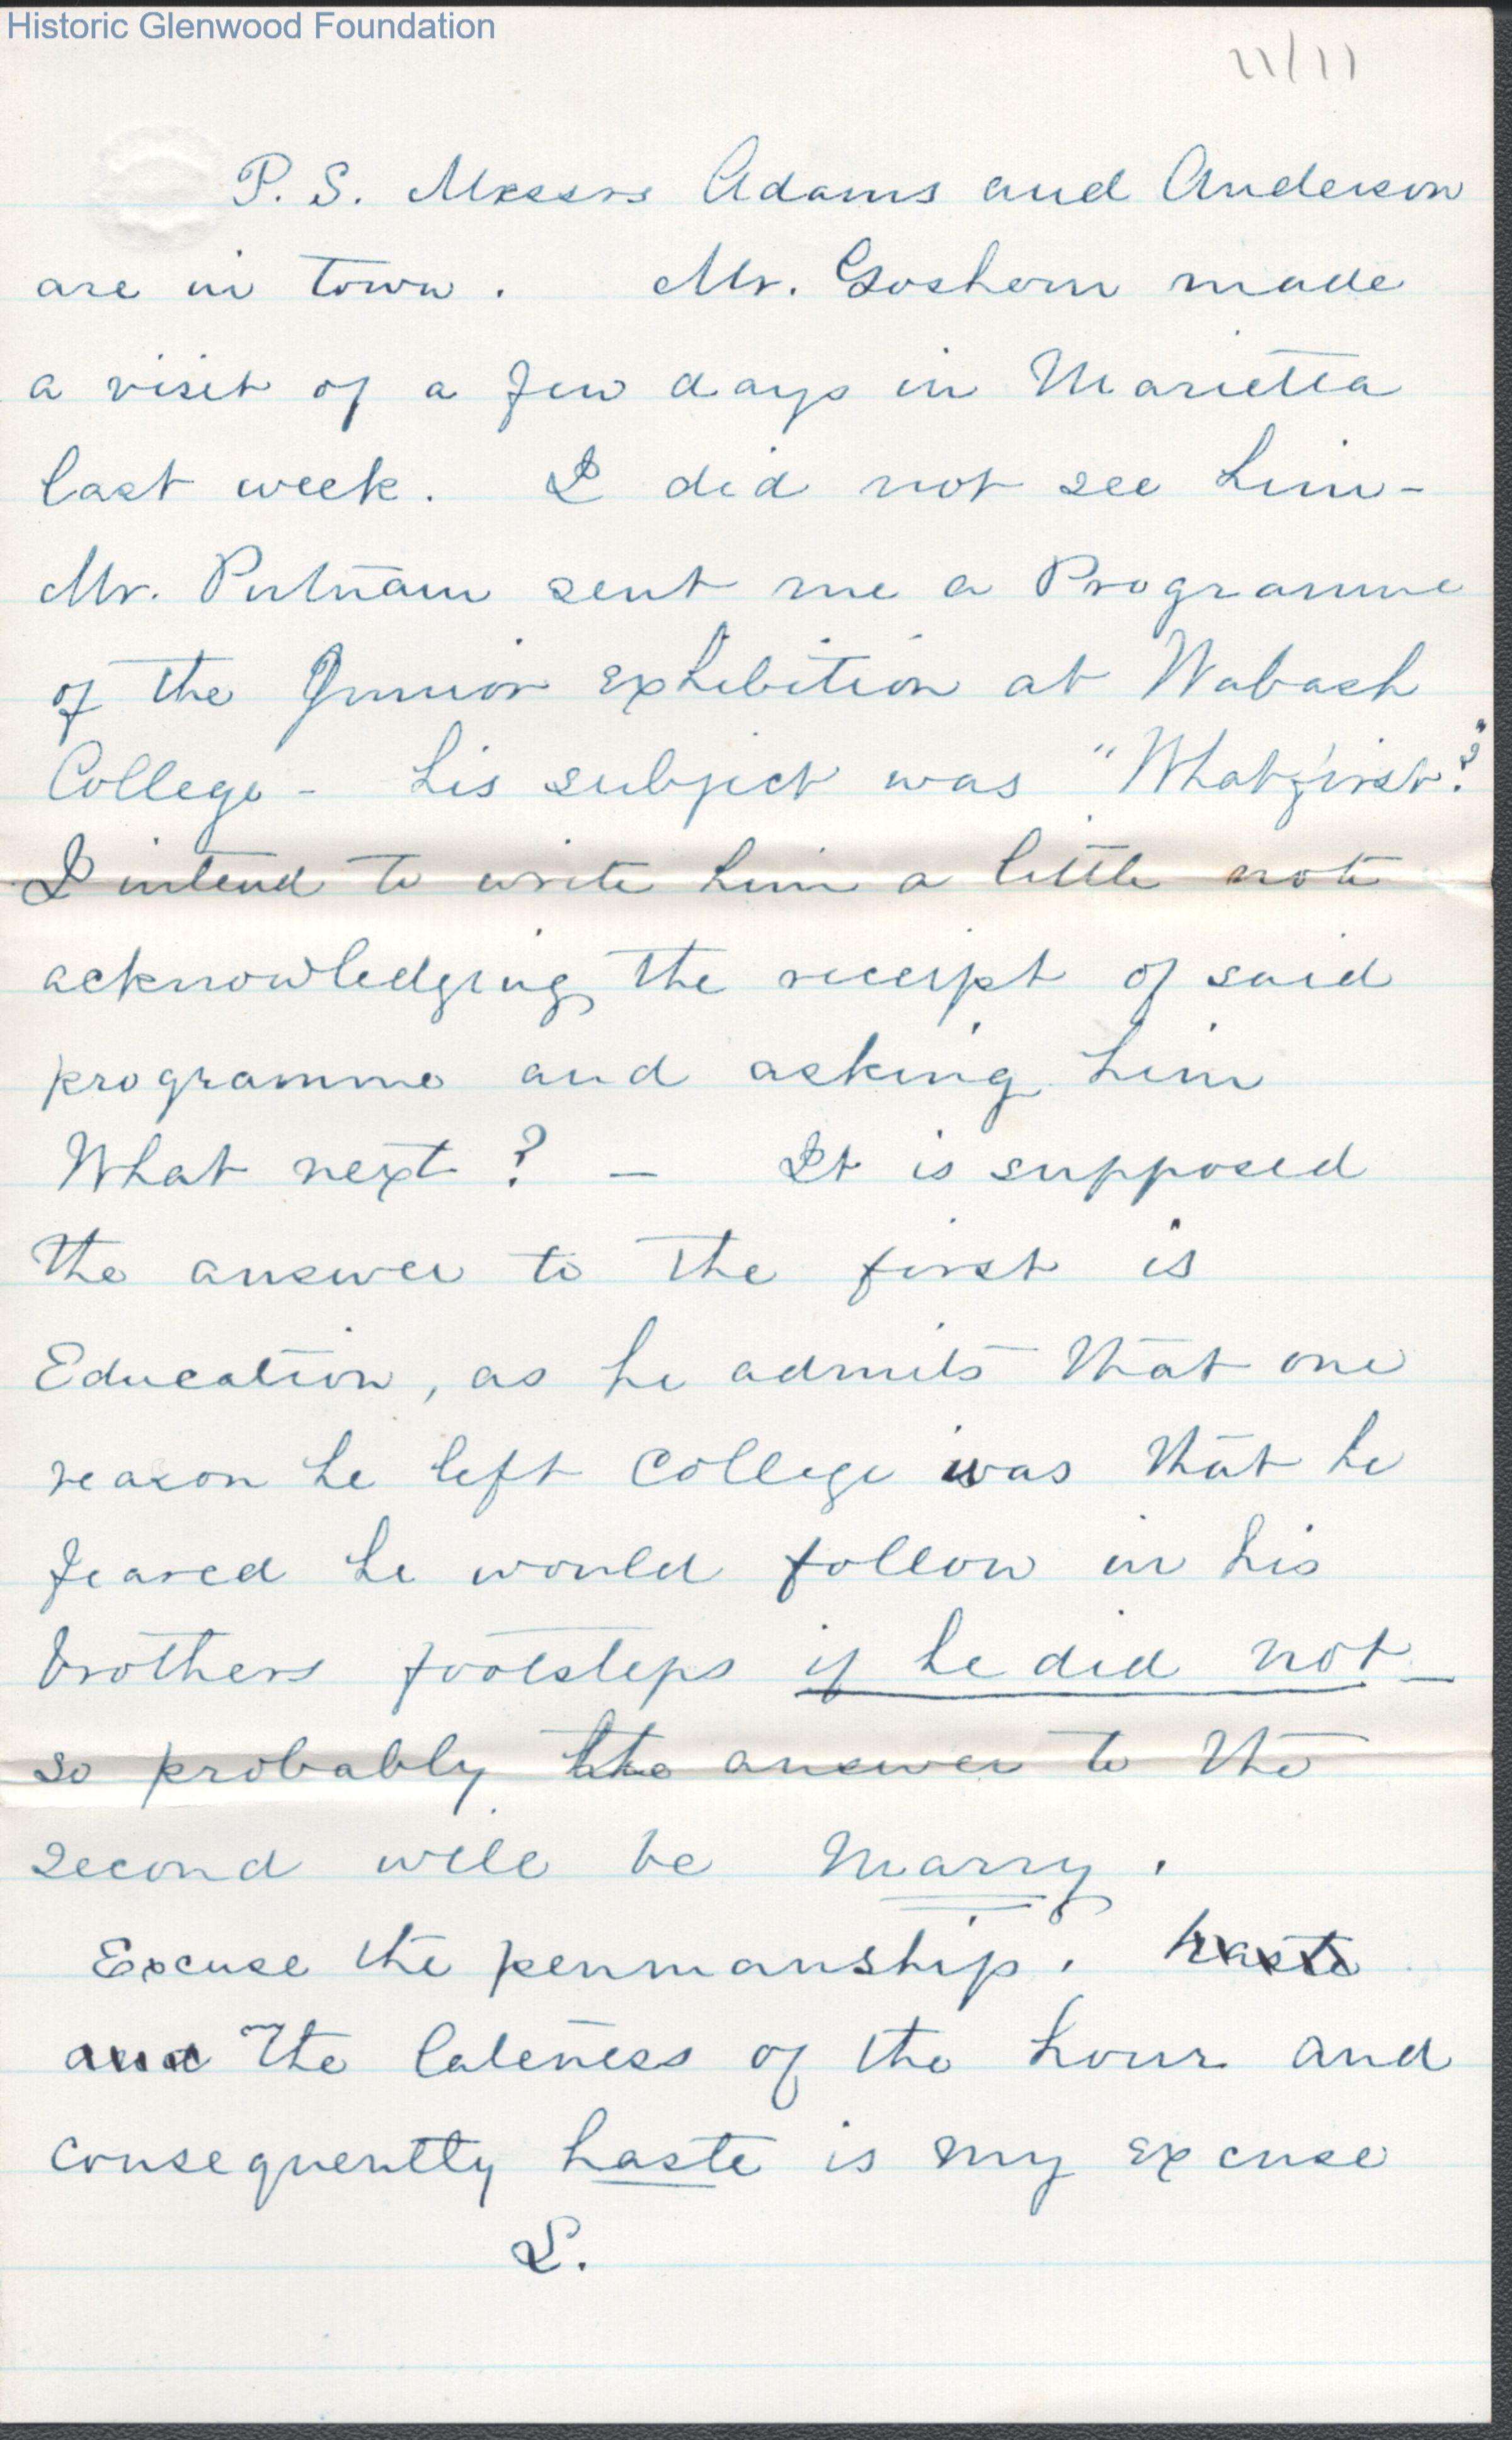 Historic Glenwood Foundation
11/11
P. S. Messrs Adams and Anderson
are in town. Mr. Goshorn made
a visit of a few days in Marietta
last week. I did not see him -
Mr. Putnam sent me a Programme
of the Junior exhibition at Wabash
College - his subject was "What first?"
I intend to write him a little note
acknowledging the receipt of said
programme and asking him
What next? - It is supposed
the answer to the first is
Education, as he admits that one
reason he left college was that he
feared he would follow in his
brothers footsteps if he did not -
so probably the answer to the
second will be Marry.
Excuse the penmanship. haste
and The lateness of the hour and
consequently haste is my excuse
L.